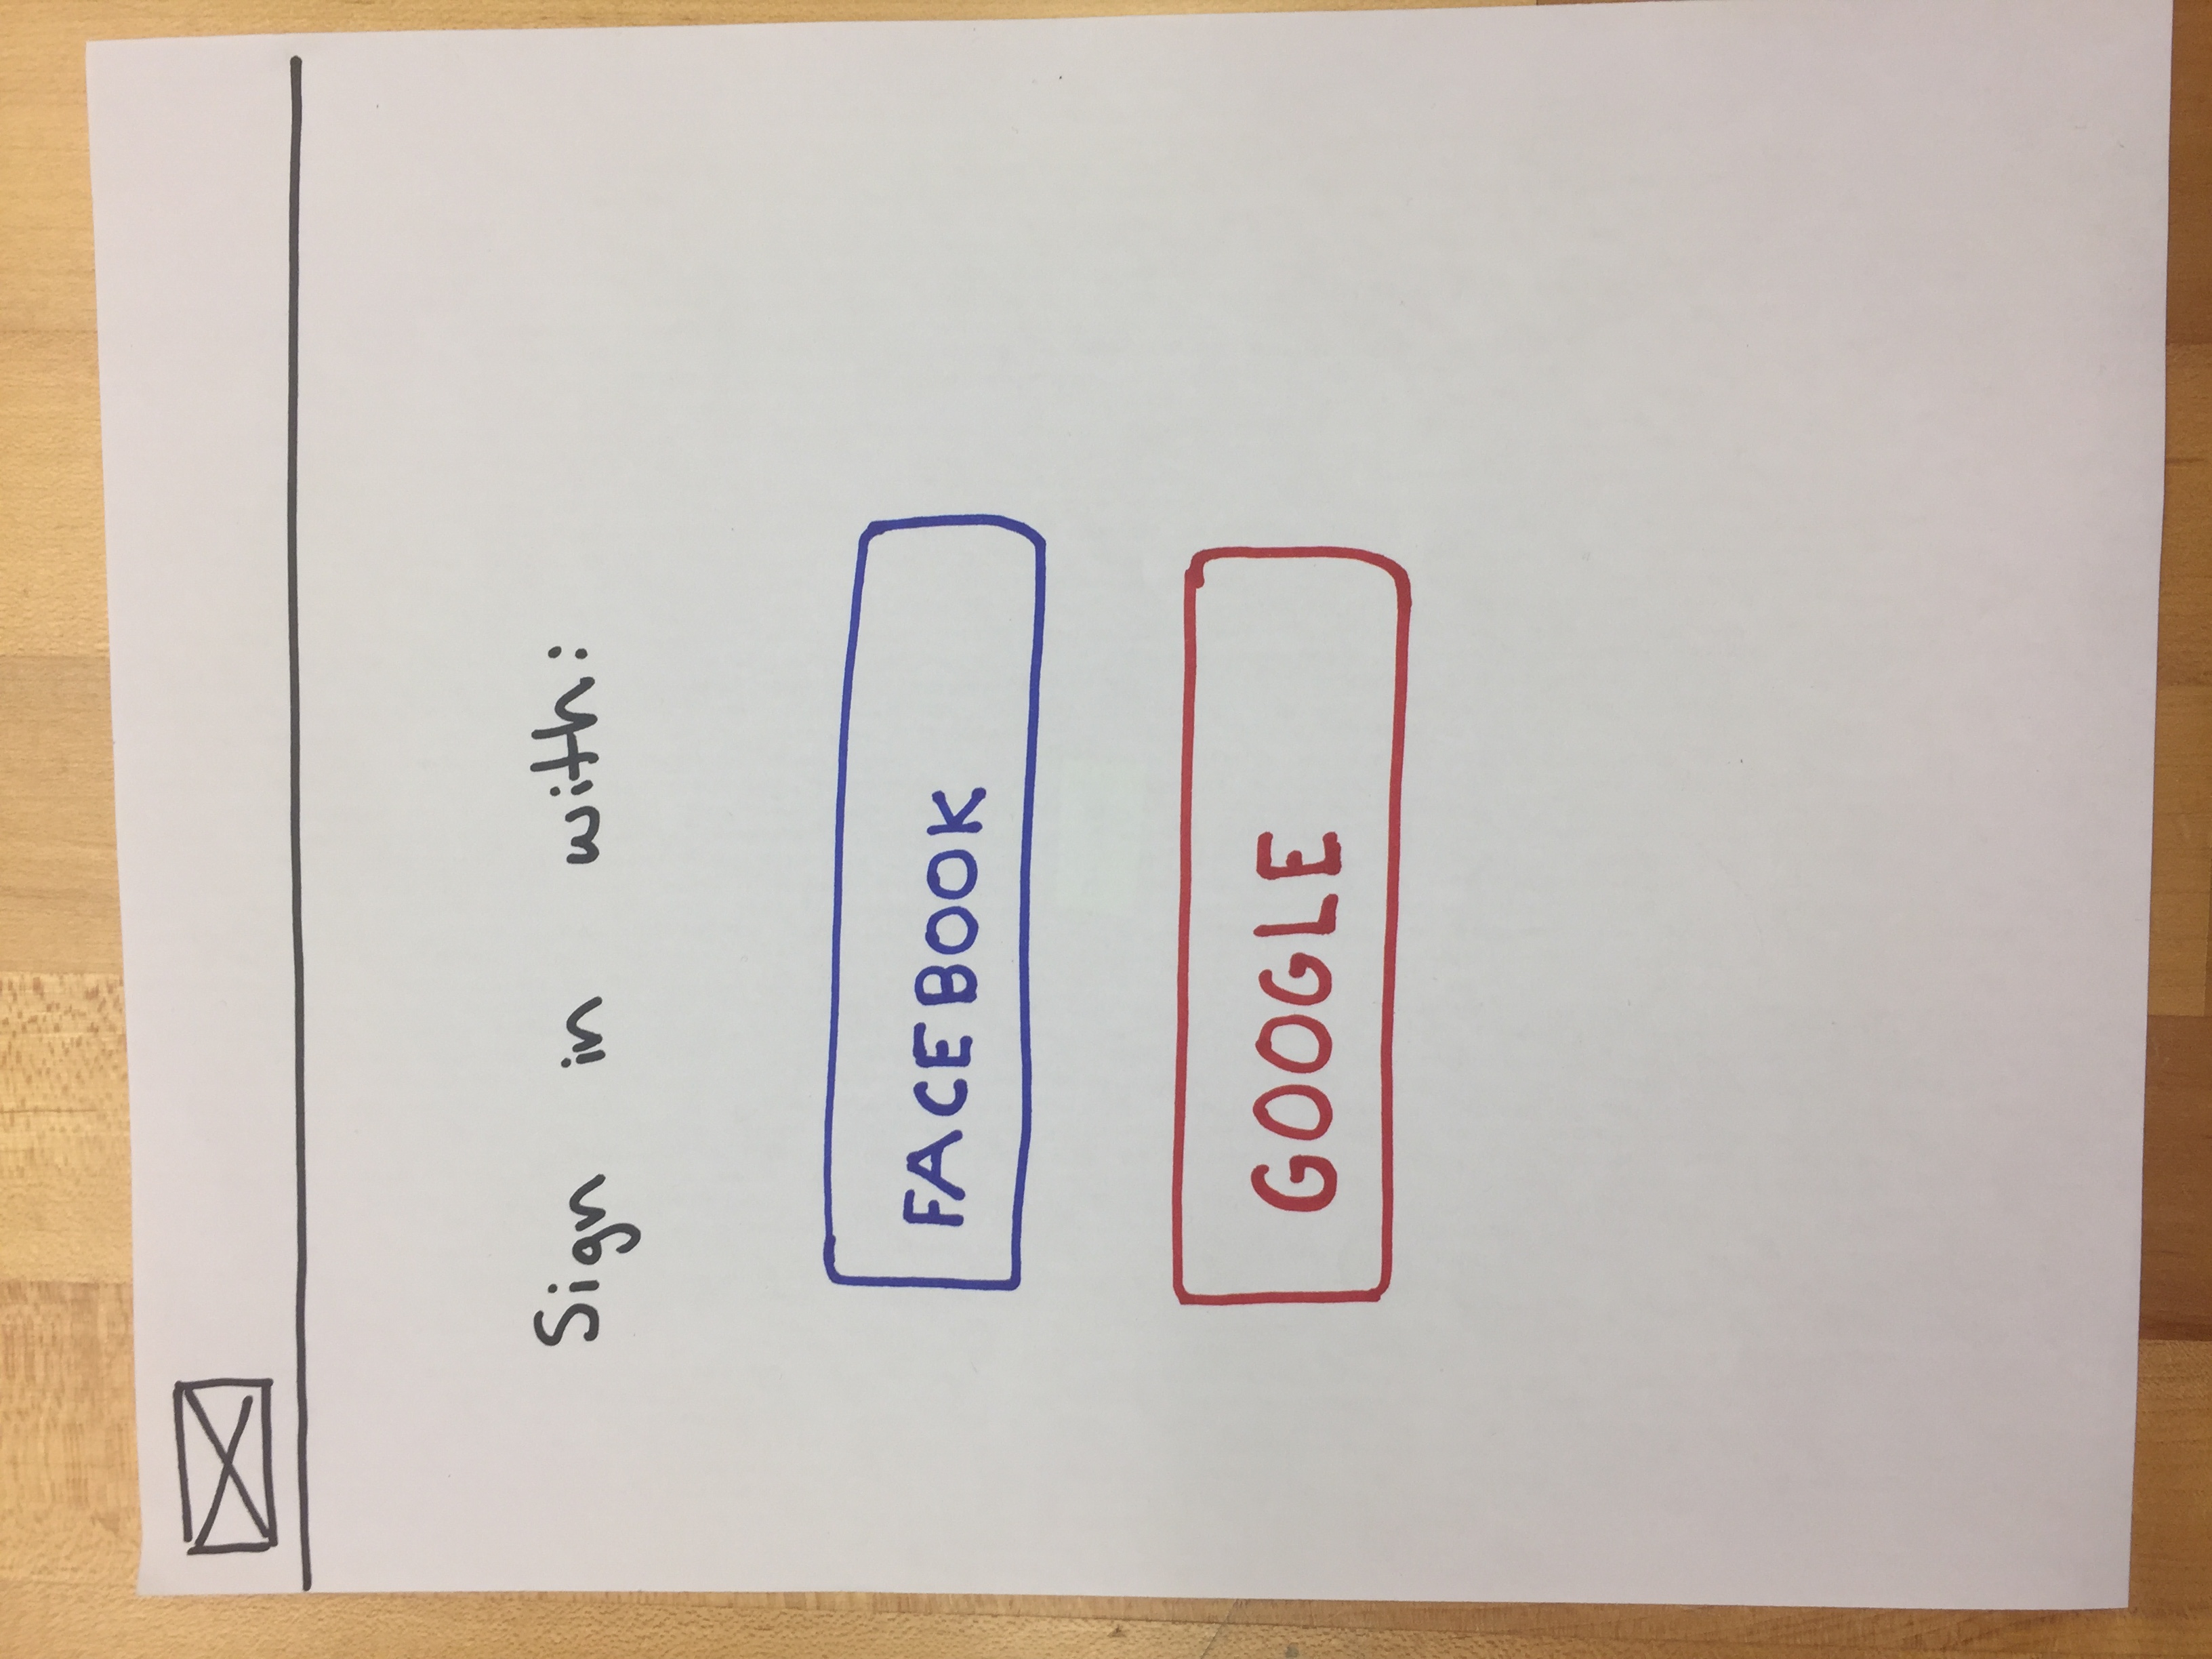 Sign in with:
FACEBOOK
GOOGLE